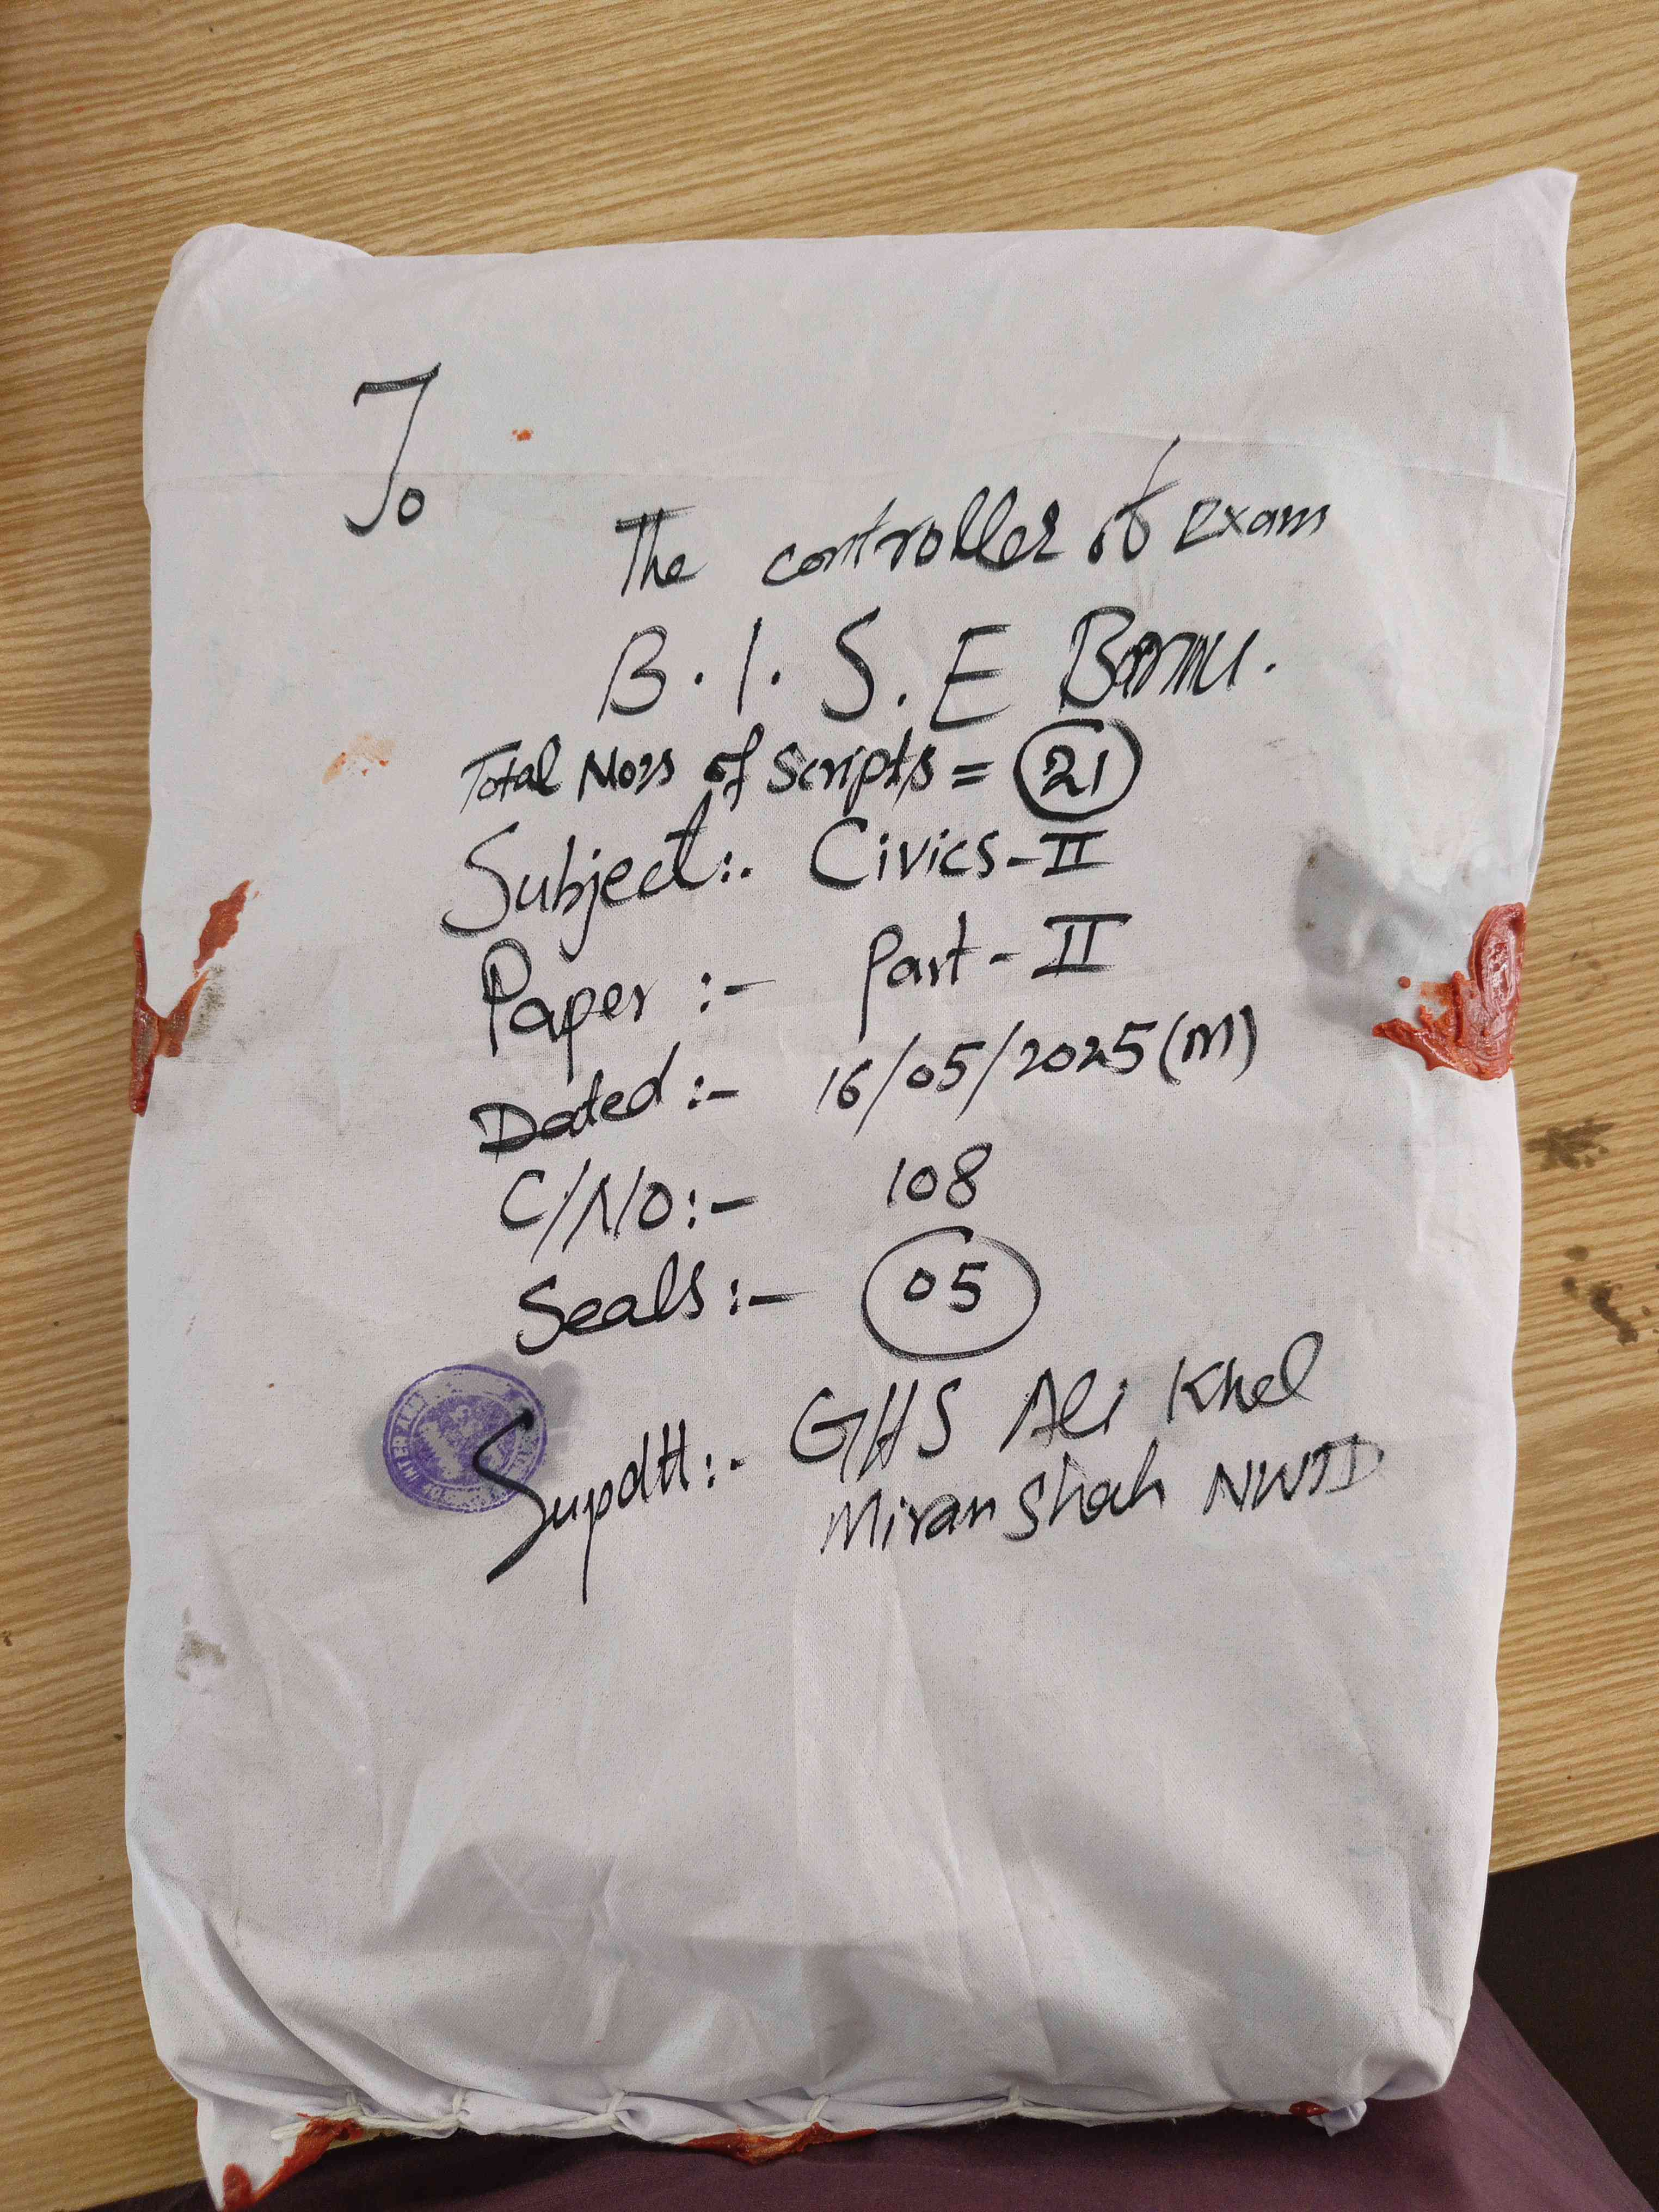 To
The controller of Exam
B.I.S.E Bannu.
Total Nos of Scripts = 21
Subject:. Civics-II
Paper :- Part-II
Dated :- 16/05/2025(M)
C/NO:- 108
Seals:- 05
Supdtt:- GHS Ali Khel
Miran Shah NWTD
INTER